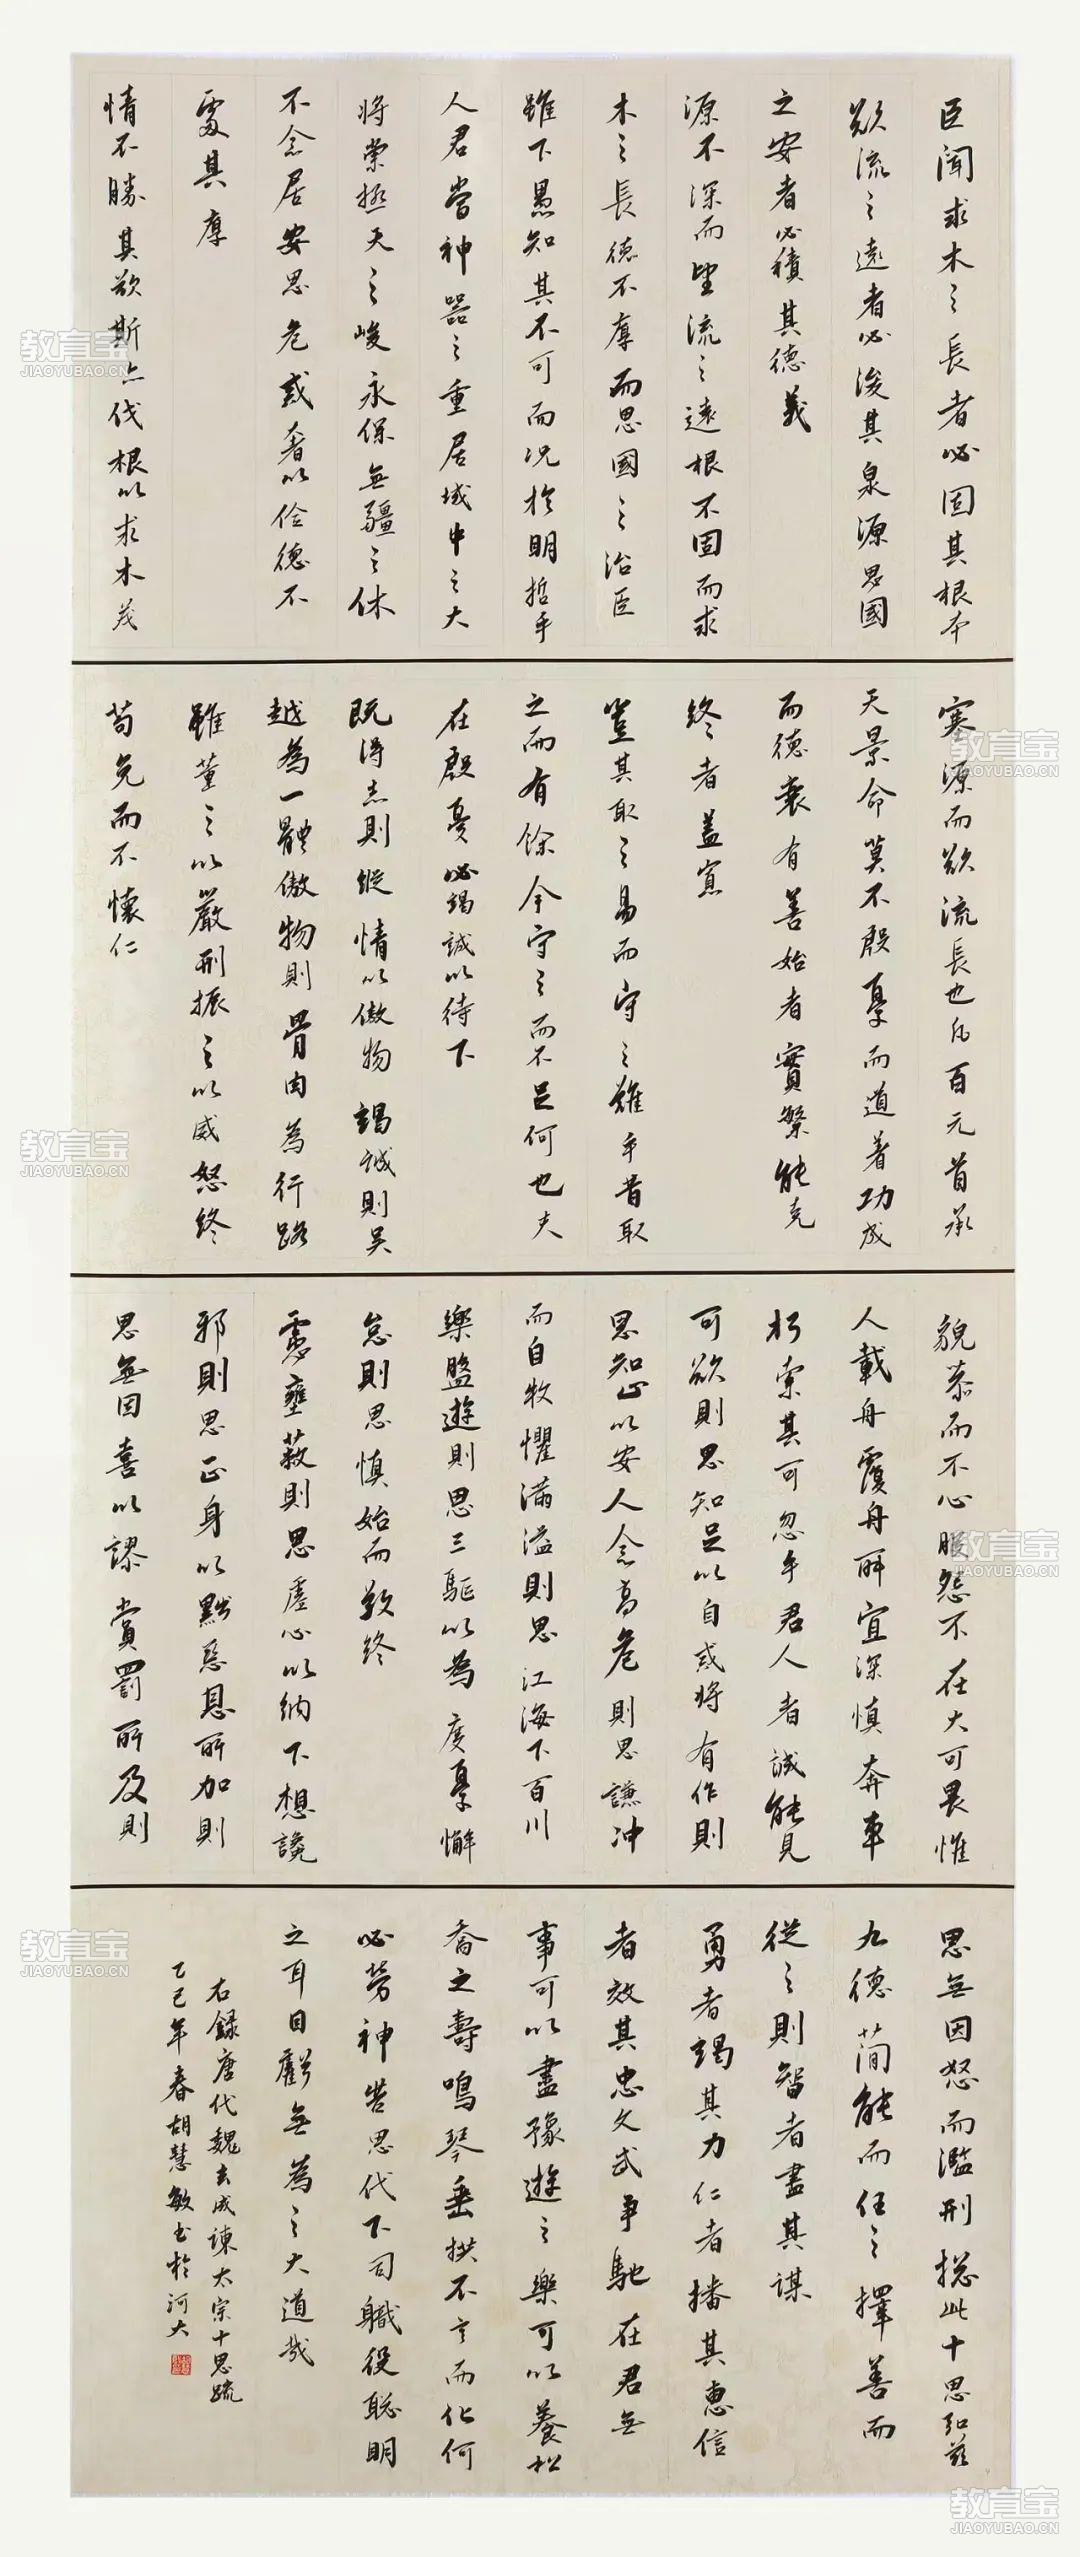 臣聞求木之長者必固其根本
欲流之遠者必浚其泉源思國
之安者必積其德義
源不深而望流之遠根不固而求
木之長德不厚而思國之治臣
雖下愚知其不可而況於明哲乎
人君當神器之重居域中之大
將崇極天之峻永保無疆之休
不念居安思危戒奢以儉德不
處其厚
情不勝其欲斯亦伐根以求木茂
塞源而欲流長也凡百元首承
天景命莫不殷憂而道著功成
而德衰有善始者實繁能克
終者蓋寡
豈其取之易而守之難乎昔取
之而有餘今守之而不足何也夫
在殷憂必竭誠以待下
既得志則縱情以傲物竭誠則吳
越為一體傲物則骨肉為行路
雖董之以嚴刑振之以威怒終
苟免而不懷仁
貌恭而不心服怨不在大可畏惟
人載舟覆舟所宜深慎奔車
朽索其可忽乎君人者誠能見
可欲則思知足以自戒將有作則
思知止以安人念高危則思謙沖
而自牧懼滿溢則思江海下百川
樂盤遊則思三驅以為度憂懈
怠則思慎始而敬終
慮壅蔽則思虛心以納下想讒
邪則思正身以黜惡恩所加則
思無因喜以謬賞罰所及則
思無因怒而濫刑總此十思弘茲
九德簡能而任之擇善而
從之則智者盡其謀
勇者竭其力仁者播其惠信
者效其忠文武爭馳在君無
事可以盡豫遊之樂可以養松
喬之壽鳴琴垂拱不言而化何
必勞神苦思代下司職役聰明
之耳目虧無為之大道哉
右錄唐代魏玄成諫太宗十思疏
乙巳年春胡慧敏書於河大
教育宝
JIAOYUBAO.CN
教育宝
JIAOYUBAO.CN
教育宝
JIAOYUBAO.CN
教育宝
JIAOYUBAO.CN
教育宝
JIAOYUBAO.CN
教育宝
JIAOYUBAO.CN